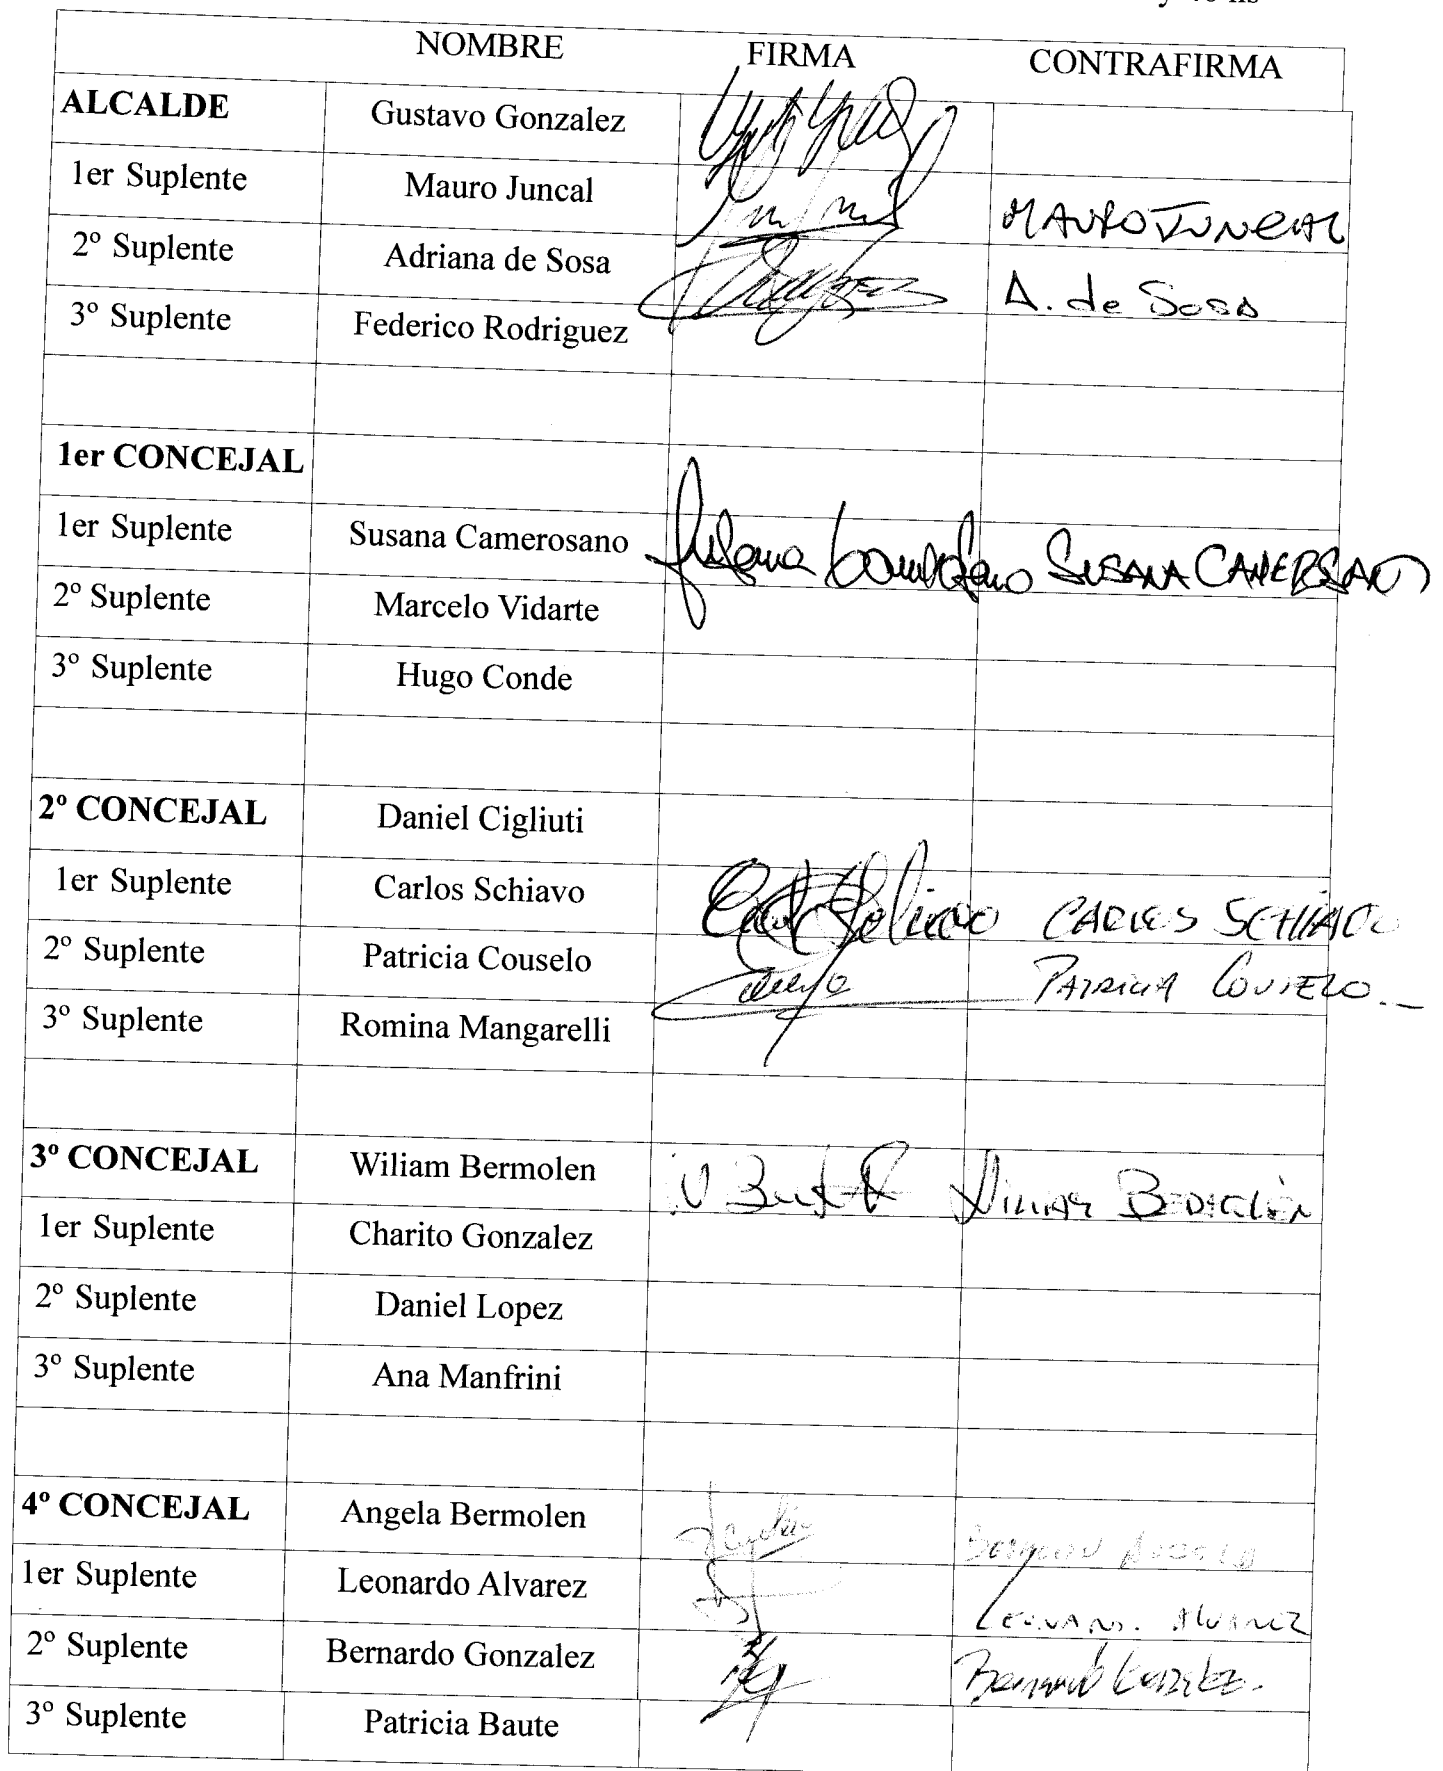 NOMBRE FIRMA CONTRAFIRMA
ALCALDE Gustavo Gonzalez
1er Suplente Mauro Juncal MAURO JUNCAL
2º Suplente Adriana de Sosa A. de Sosa
3º Suplente Federico Rodriguez
1er CONCEJAL
1er Suplente Susana Camerosano Susana Camerosano SUSANA CAMERSANO
2º Suplente Marcelo Vidarte
3º Suplente Hugo Conde
2º CONCEJAL Daniel Cigliuti
1er Suplente Carlos Schiavo CARLOS SCHIAVO
2º Suplente Patricia Couselo PATRICIA COUSELO
3º Suplente Romina Mangarelli
3º CONCEJAL Wiliam Bermolen
1er Suplente Charito Gonzalez
2º Suplente Daniel Lopez
3º Suplente Ana Manfrini
4º CONCEJAL Angela Bermolen
1er Suplente Leonardo Alvarez ALVAREZ
2º Suplente Bernardo Gonzalez Bernardo González.
3º Suplente Patricia Baute